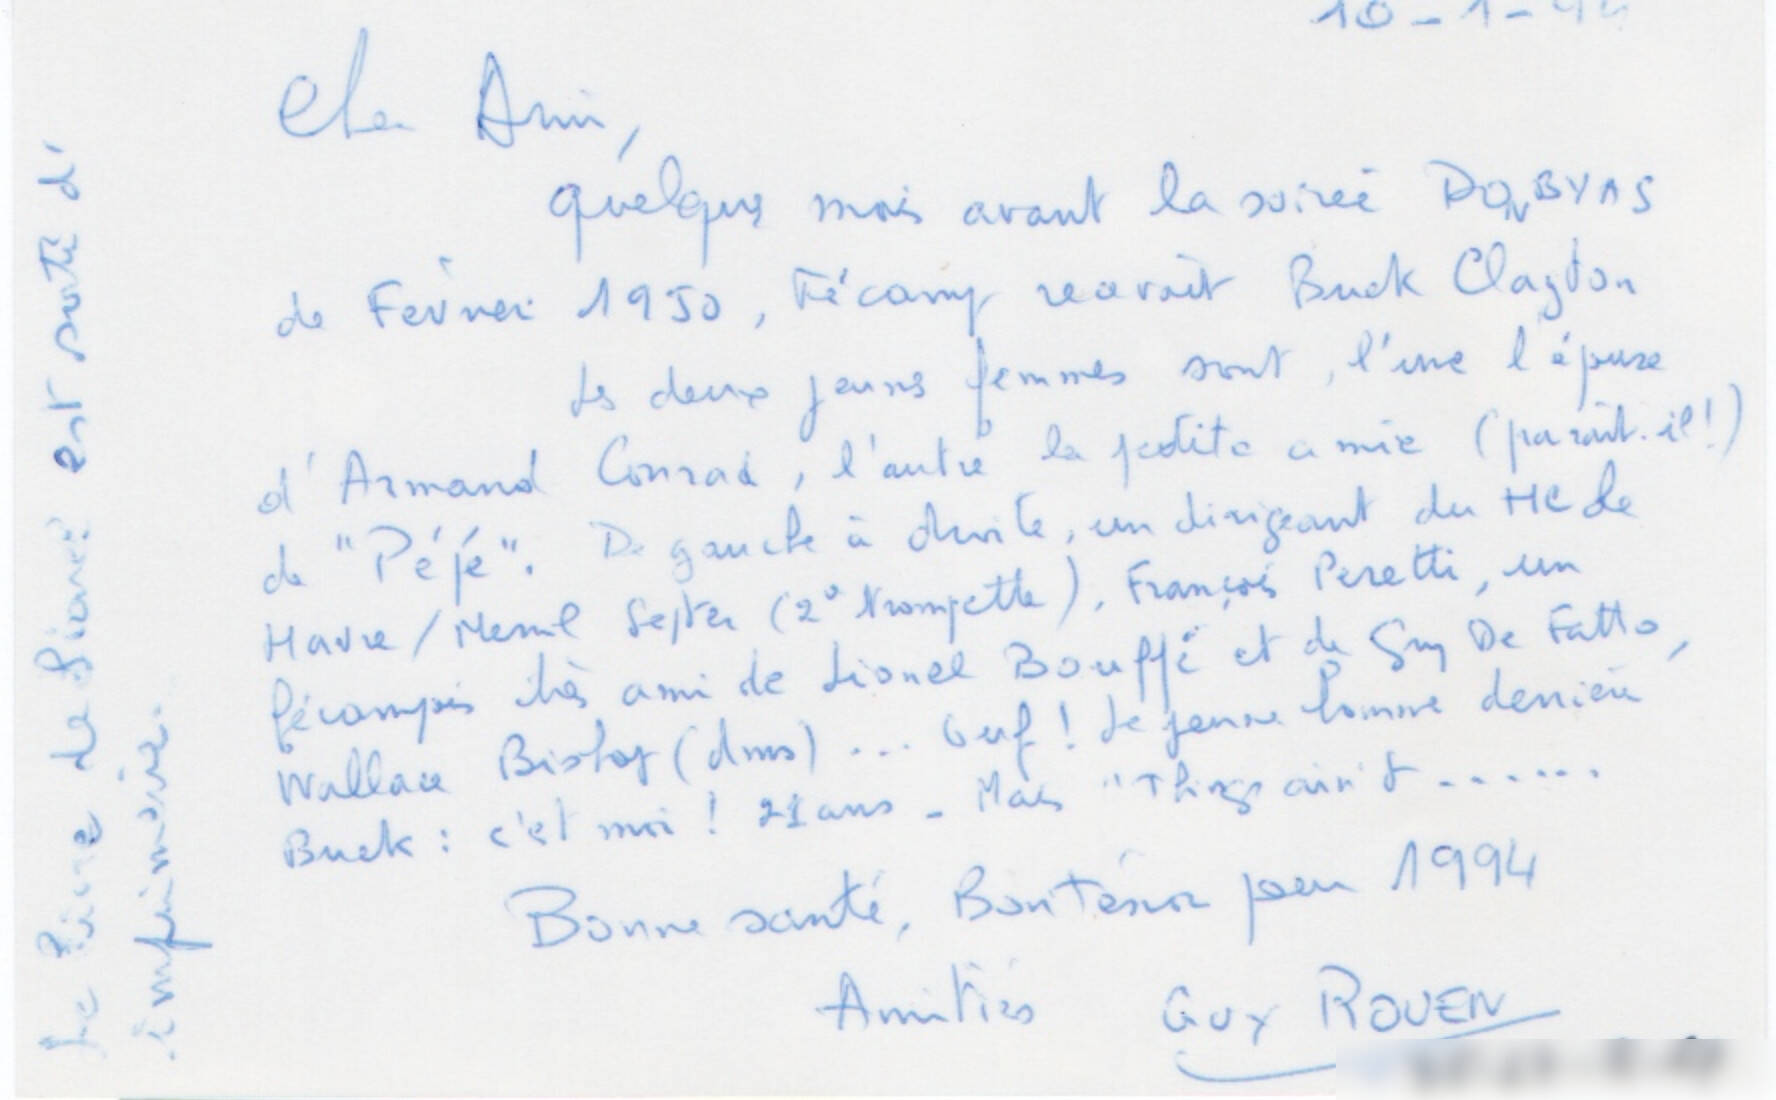 10-1-94
Cher Ami,
quelques mois avant la soirée DON BYAS
de Février 1950, Fécamp recevait Buck Clayton
Les deux jeunes femmes sont, l'une l'épouse
d'Armand Conrad, l'autre la petite amie (paraît-il!)
de "Pépé". De gauche à droite, un dirigeant du HC Le
Havre / Merril Stepter (2° trompette), François Peretti, un
fécampois très ami de Lionel Bouffé et de Guy De Fatto,
Wallace Bishop (dms) ... Ouf! Le jeune homme derrière
Buck : c'est moi ! 21 ans - Mais "Things ain't .......
Bonne santé, pour 1994
Amitiés GUY ROUEN
Le livre de est sorti d'
imprimerie.